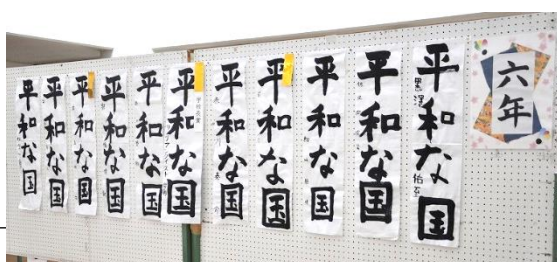 六年
平和な国
平和な国
平和な国
平和な国
平和な国
平和な国
平和な国
平和な国
平和な国
平和な国
平和な国